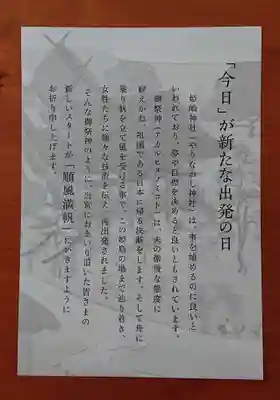 「今日」が新たな出発の日
姫嶋神社（やりなおし神社）は、事を始めるのに良いと
いわれており、夢や目標を決めると良いともされています。
御祭神（アカルヒメノミコト）は、夫の傲慢な態度に
耐えかね、祖国である日本に帰る決断をします。そして舟に
乗り帆を立て風を受ける事で、この姫島の地まで辿り着き、
女性たちに様々な技術を伝え、再出発されました。
そんな御祭神のように、当宮にお参り頂いた皆さまの
新しいスタートが「順風満帆」にいきますように
お祈り申し上げます。